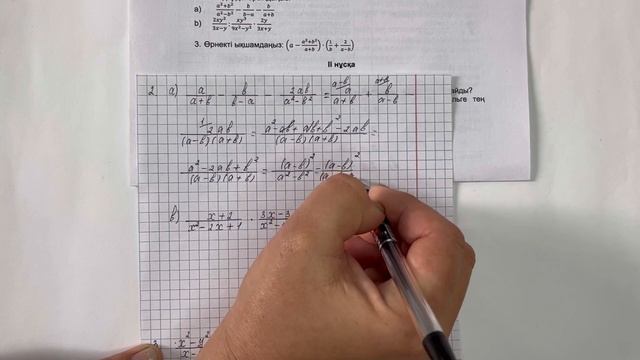 a) (a²+b²)/(a²-b²) - b/(b-a) - b/(a+b)
b) 2xy²/(3x-y) : xy³/(9x²-y²) · 2y/(3x+y)
3. Өрнекті ықшамдаңыз: (a - (a²+b²)/(a+b)) · (1/b + 2/(a-b))
II нұсқа
2. a) a/(a+b) - b/(b-a) - 2ab/(a²-b²) = a-b a/(a+b) + a+b b/(a-b) -
1 2ab/((a-b)(a+b)) = (a²-ab+ab+b²-2ab)/((a-b)(a+b)) =
(a²-2ab+b²)/((a-b)(a+b)) = (a-b)²/(a²-b²) = (a-b)²
айды?
тең
b) (x+2)/(x²-2x+1) · 3x-3
3. x²-y²